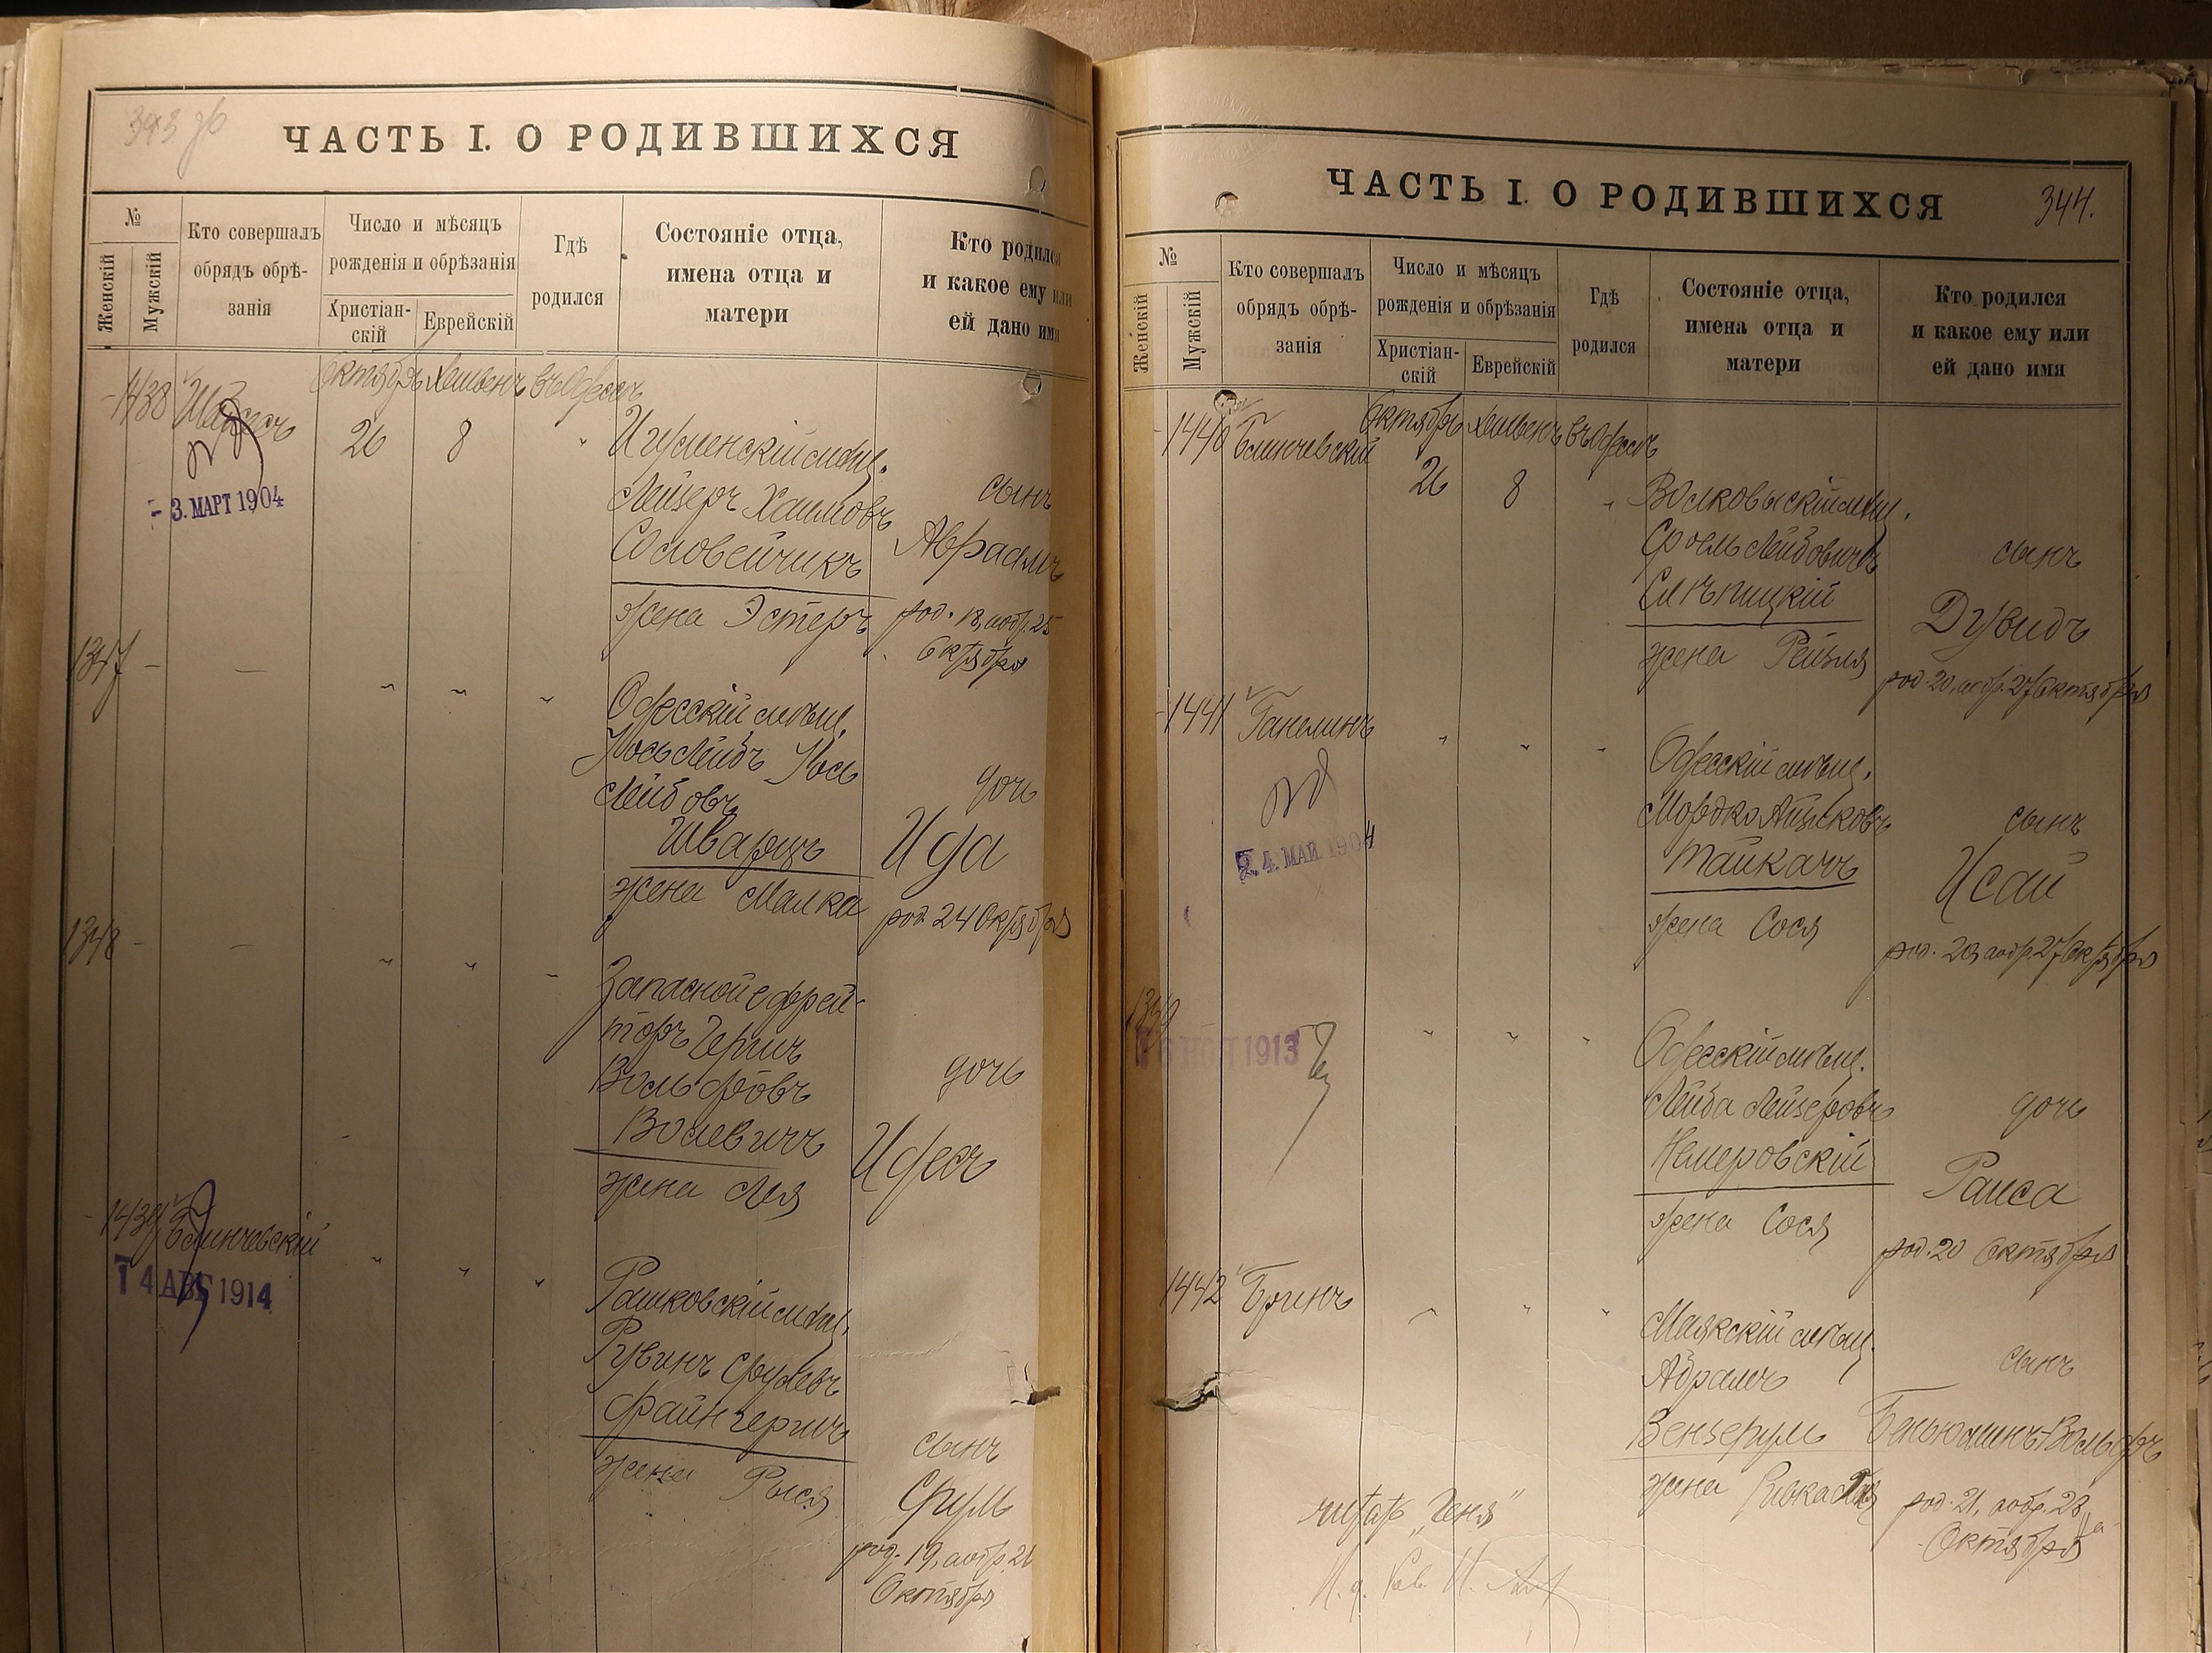 343 об
ЧАСТЬ I. О РОДИВШИХСЯ
№
Женскій
Мужскій
Кто совершалъ
обрядъ обрѣ-
занія
Число и мѣсяцъ
рожденія и обрѣзанія
Христіан-
скій
Еврейскій
Гдѣ
родился
Состояніе отца,
имена отца и
матери
Кто родился
и какое ему или
ей дано имя
Октябрь Хешвенъ въ Одессѣ
1438
26 8 "
3. МАРТ 1904
Игуменскій мѣщ.
Лейзеръ Хаимовъ
Соловейчикъ
жена Эстеръ
сынъ
Авраамъ
род. 18, аобр. 25
Октября
1347 - - " " "
Одесскій мѣщ.
Іось Лейбъ Іось
Лейбовъ
Шварцъ
жена Малка
дочь
Ида
род. 24 Октября
1348 - - " " "
Запасной ефрей-
торъ Гершъ
Вольфовъ
Волевичъ
жена Лея
дочь
Идесъ
1439 Блинчевскій " " "
14 АВГ 1914
Рашковскій мѣщ.
Рувинъ Срулевъ
Файнгершъ
жена Рыся
сынъ
Сруль
род. 19, аобр. 26
Октября
ЧАСТЬ I. О РОДИВШИХСЯ
344.
№
Женскій
Мужскій
Кто совершалъ
обрядъ обрѣ-
занія
Число и мѣсяцъ
рожденія и обрѣзанія
Христіан-
скій
Еврейскій
Гдѣ
родился
Состояніе отца,
имена отца и
матери
Кто родился
и какое ему или
ей дано имя
Октябрь Хешвенъ въ Одессѣ
1440 Блинчевскій
26 8 "
Волковыскій мѣщ.
Сроель Лейбовичъ
Слѣпицкій
жена Рейзля
сынъ
Дувидъ
род. 20, аобр. 27 Октября
1441 Ганелинъ " " "
24. МАЙ 1904
Одесскій мѣщ.
Мордко Айзиковъ
Тайкачъ
жена Сося
сынъ
Исай
род. 20, аобр. 27 Октября
1349 " " "
1913
Одесскій мѣщ.
Лейба Лейзеровъ
Немеровскій
жена Сося
дочь
Раиса
род. 20 Октября
1442 Бринъ " " "
Маякскій мѣщ.
Абрамъ
Венгеруль
жена Ривка
сынъ
Беньюминъ-Вольфъ
род. 21, аобр. 28
Октября
читать „Геня"